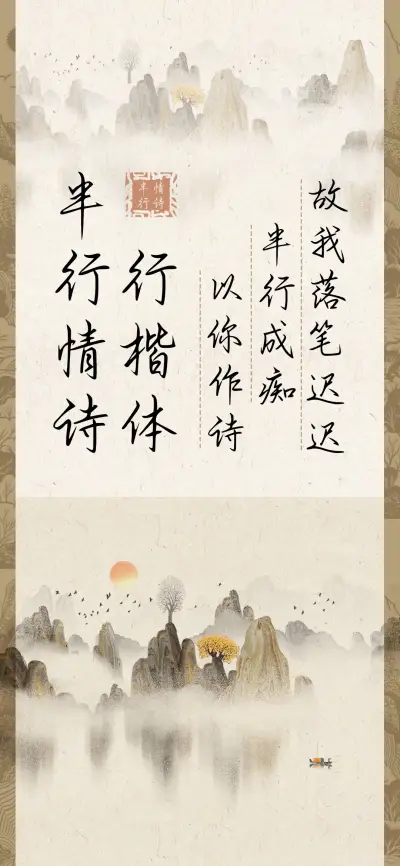 故我落笔迟迟
半行成痴
以你作诗
行楷体
半行情诗
情诗
半行